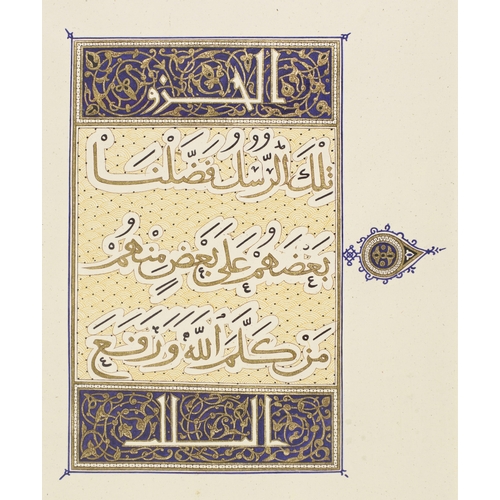 الجزو
تِلْكَ الرُّسُلُ فَضَّلْنَا
بَعْضَهُمْ عَلَى بَعْضٍ مِنْهُمْ
مَنْ كَلَّمَ اللَّهُ وَرَفَعَ
الثالث